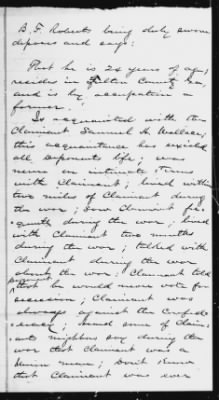 B. F. Roberts being duly sworn
deposes and says:
That he is 24 years of age,
resides in Fulton County Ga,
and is by occupation a
farmer.
Is acquainted with the
Claimant Samuel H. Wallace;
this acquaintance has existed
all deponents life; was
never on intimate terms
with Claimant; lived within
two miles of Claimant during
the war; Saw Claimant fre-
quently during the war; lived
with Claimant two months
during the war; talked with
Claimant during the war
about the war; Claimant told
that he would never vote for
secession; Claimant was
always against the Confed-
eracy; heard some of Claim-
ants neighbors say during the
war that Claimant was a
Union man; Don't know
that Claimant was ever